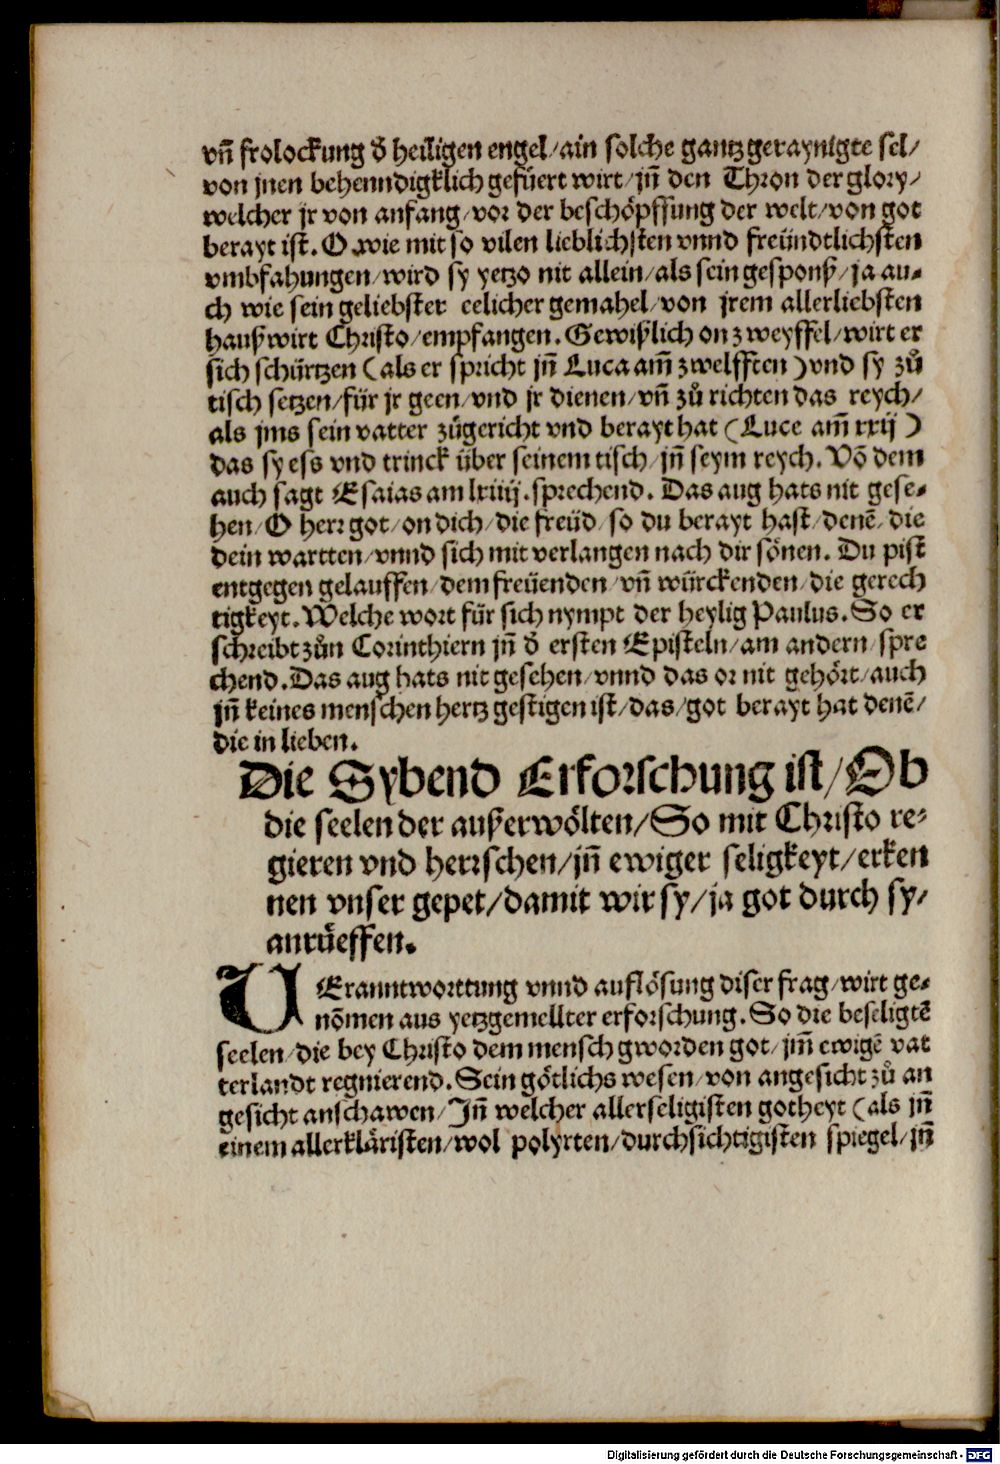 vn̄ frolockung d̕ heiligen engel/ain solche gantz geraynigte sel/
von jnen behenndigklich gefüert wirt/jn̄ den Thron der glory/
welcher jr von anfang/vor der beschöpffung der welt/von got
berayt ist. O wie mit so vilen lieblichsten vnnd freündtlichsten
vmbfahungen/wird sy yetzo nit allein/als sein gesponß/ja au⸗
ch wie sein geliebster eelicher gemahel/von jrem allerliebsten
haußwirt Christo/empfangen. Gewißlich on zweyffel/wirt er
sich schürtzen (als er spricht jn̄ Luca am̄ zwelfften) vnd sy zů
tisch setzen/für jr geen/vnd jr dienen/vn̄ zů richten das reych/
als jms sein vatter zůgericht vnd berayt hat (Luce am̄ xxij)
das sy ess vnd trinck über seinem tisch/jn̄ seym reych. Võ dem
auch sagt Esaias am lxiiij. sprechend. Das aug hats nit gese⸗
hen/O herr got/on dich/die freüd/so du berayt hast/denē/die
dein wartten/vnnd sich mit verlangen nach dir sönen. Du pist
entgegen gelauffen/dem freüenden/vn̄ würckenden/die gerech
tigkeyt. Welche wort für sich nympt der heylig Paulus. So er
schreibt zůn Corinthiern jn̄ d̕ ersten Episteln/am andern/spre
chend. Das aug hats nit gesehen/vnnd das or nit gehört/auch
jn̄ keines menschen hertz gestigen ist/das/got berayt hat denē/
die in lieben.
Die Sybend Erforschung ist/Ob
die seelen der außerwölten/So mit Christo re⸗
gieren vnd herrschen/jn̄ ewiger seligkeyt/erken
nen vnser gepet/damit wir sy/ja got durch sy/
anrůeffen.
VEranntworttung vnnd auflösung diser frag/wirt ge⸗
nõmen aus yetzgemellter erforschung. So die beseligtē
seelen/die bey Christo dem mensch gworden got/jm̄ ewigē vat
terlandt regnierend. Sein götlichs wesen/von angesicht zů an
gesicht anschawen/Jn̄ welcher allerseligisten gotheyt (als jn̄
einem allerkläristen/wol polyrten/durchsichtigisten spiegel/jn̄
Digitalisierung gefördert durch die Deutsche Forschungsgemeinschaft - DFG